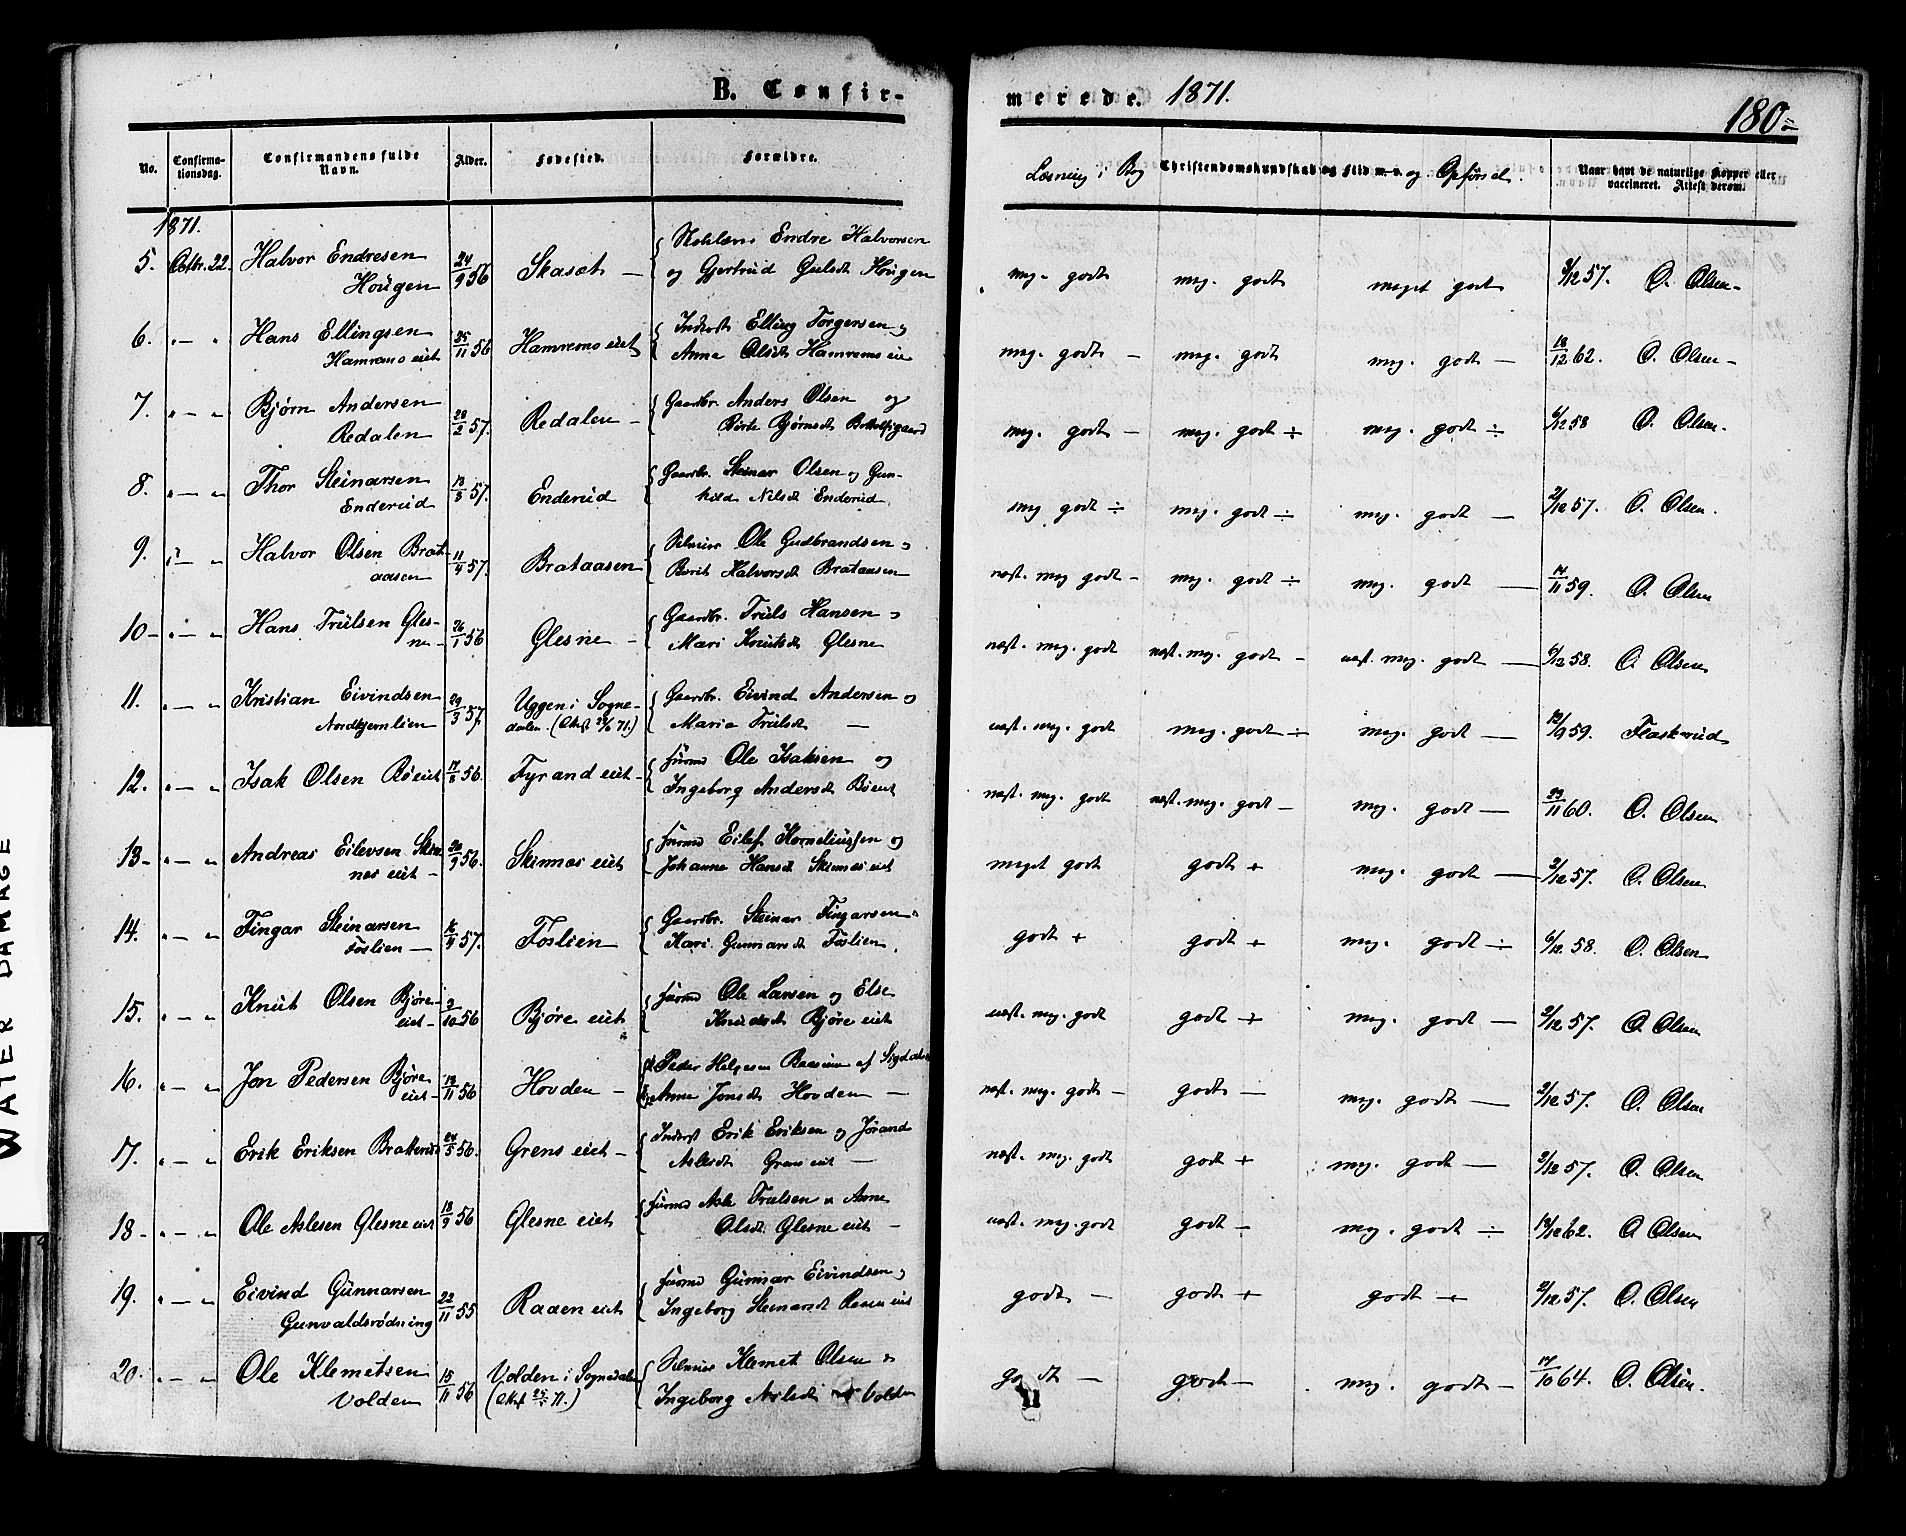 B. Confir-
merede. 1871.
180.
No.
Confirma-
tionsdag.
Confirmandens fulde
Navn.
Alder.
Fødested.
Forældre.
Læsning i Bog
Christendomskundskab og Flid m. v. og Opførsel.
Naar havt de naturlige Kopper eller
vaccineret. Attest derom.
1871.
5. Octbr. 22. Halvor Endresen
Hougen
24/9 56 Skaset — Endre Halvorsen
og Gjertrud Gulsdt Hougen
meg. godt meg. godt meget godt 9/12 57. O. Olsen
6. " — " Hans Ellingsen
Hamremo eiet
25/11 56 Hamremo eiet Inderst Elling Torgersen og
Anna Olsdt Hamremo eie
meg. godt — meg. godt meg. godt — 18/12 62. O. Olsen
7. " — " Bjørn Andersen
Redalen
28/2 57. Redalen — Gaardbr. Anders Olsen og
Birte Bjørnsdt
meg. godt — meg. godt ÷ meg. godt ÷ 6/12 58 O. Olsen.
8. " — " Thor Steinarsen
Enderud
13/5 57. Enderud Gaardbr. Steinar Olsen og Gun-
hild Nilsdt Enderud
meg godt ÷ meg. godt ÷ meg. godt — 2/12 57. O. Olsen.
9. " — " Halvor Olsen Brat-
aasen
11/4 57. Brataasen Ole Gudbrandsen og
Berit Halvorsdt Brataasen
næst. meg godt — meg. godt ÷ meg. godt — 14/11 59. O. Olsen
10 — " — " Hans Trulsen Gles-
ne —
26/1 56 Glesne — Gaardbr. Truls Hansen og
Mari Knutsdt Glesne
næst. meg. godt næst. meg. godt — næst. meg. godt — 6/12 58. O. Olsen
11. " — " Kristian Eivindsen
Nordbjernlien
29/3 57. Uggen i Sogne-
dalen. (Attest 71.) Gaardbr. Eivind Andersen og
Maria Trulsdt —
næst. meg. godt meg. godt ÷ meg. godt — 12/9 59. Flaskerud
12. " — " Isak Olsen Bøeiet
17/8 56. Fyrand eiet — Huusmd Ole Isaksen og
Ingeborg Andersdt Bøeiet
næst. meg. godt næst. meg. godt — meg. godt — 23/11 60. O. Olsen
13 — " — " Andreas Eilevsen Skin-
nes eiet —
20/9 56. Skinnes eiet Huusmd Eilef Korneliussen og
Johanne Hansdt Skinnes eiet
meget godt godt + meg. godt — 2/12 57. O. Olsen
14. " — " Fingar Steinarsen
Foslien —
16/4 57. Foslien Gaardbr. Steinar Fingarsen og
Kari Gunnarsdt Foslien.
godt + godt + meg. godt ÷ 6/12. 58. O. Olsen
15. " — " Knut Olsen Bjøre-
eiet —
2/10 56 Bjøre eiet Huusmd Ole Larsen og Else
Knudsdt Bjøre eiet
næst. meg. godt godt + meg. godt — 2/12 57. O. Olsen
16. " — " Jon Pedersen Bjøre
eiet —
13/11 56 Hovden — Peder Helgesen af Sigdal
Anne Jonsdt Hovden —
næst. meg. godt — godt — meg. godt — 2/12 57. O. Olsen
17. " — " Erik Eriksen Bratterud
24/5 56. Grens eiet — Inderst Erik Eriksen og Jørand
Aslesdt Grens eiet —
næst. meg. godt godt + meg. godt — 2/12 57. O. Olsen
18 — " — " Ole Aslesen Glesne eiet
18/9 56 Glesne eiet Huusmd Asle Trulsen og Anne
Olsdt. Glesne eiet —
næst. meg. godt godt — meg. godt ÷ 18/12 62. O Olsen
19. " — " Eivind Gunnarsen
Gunvaldsrødning
22/11 55 Raaen eiet Huusmd Gunnar Eivindsen og
Ingeborg Steinarsdt Raaen eiet
godt — godt + godt + 2/12. 57. O. Olsen
20. " — " Ole Klemetsen
Volden
15/11 56 Volden i Sognedalen
(Attest 71.) Klemet Olsen og
Ingeborg Aslesdt Volden
godt — godt — meg. godt — 17/10 64. O. Olsen.
WATER DAMAGE